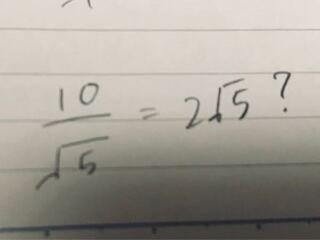 10/√5 = 2√5 ?